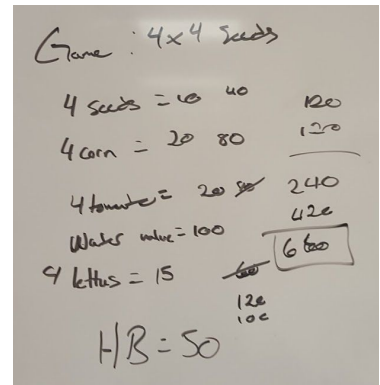 Game : 4x4 Seeds
4 seeds = 10 40 120
4 corn = 20 80 120
4 tomato = 20 80 240
Water value = 100 420
4 lettus = 15 660
120
100
HB = 50